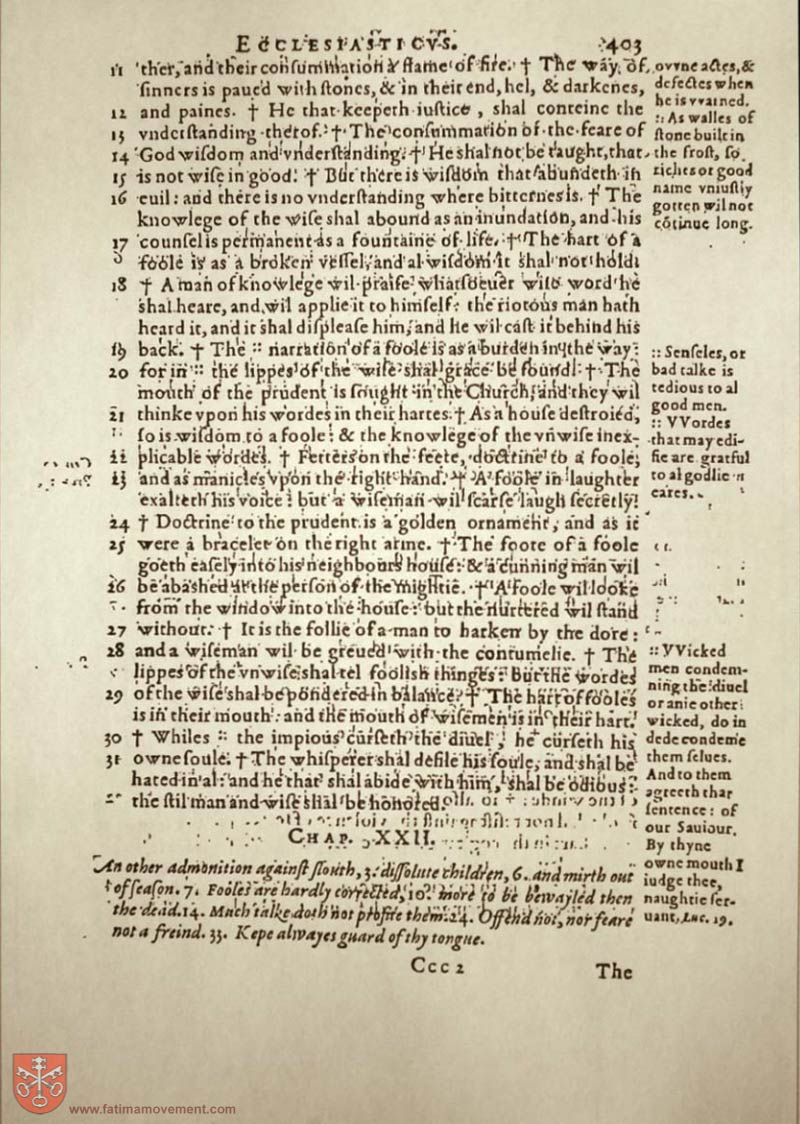 ECCLESIASTICVS. 403
11 ther, and their consummation a flame of fire. † The way of
sinners is paued with stones, & in their end, hel, & darkenes,
12 and paines. † He that keepeth iustice, shal conteine the
13 vnderstanding therof. † The consummation of the feare of
14 God wisdom and vnderstanding. † He shal not be taught, that
15 is not wise in good. † But there is wisdom that aboundeth in
16 euil: and there is no vnderstanding where bitternes is. † The
knowlege of the wise shal abound as an inundation, and his
17 counsel is permanent as a fountaine of life. † The hart of a
foole is as a broken vessel, and al wisdom it shal not hold.
18 † A man of knowlege wil praise whatsoeuer wise word he
shal heare, and wil applie it to himself: the riotous man hath
heard it, and it shal displease him, and he wil cast it behind his
19 back. † The :: narration of a foole is as a burden in the way:
20 for in :: the lippes of the wise shal grace be found. † The
mouth of the prudent is sought in the Church, and they wil
21 thinke vpon his wordes in their hartes. † As a house destroied,
so is wisdom to a foole: & the knowlege of the vnwise inex-
22 plicable wordes. † Fetters on the feete, doctrine to a foole,
23 and as manicles vpon the right hand. † A foole in laughter
exalteth his voice: but a wiseman wil scarse laugh secretly.
24 † Doctrine to the prudent is a golden ornament, and as it
25 were a bracelet on the right arme. † The foote of a foole
goeth easely into his neighbours house: & a cunning man wil
26 be abashed at the person of the mightie. † A foole wil looke
from the window into the house: but the nurtered wil stand
27 without. † It is the follie of a man to harken by the dore:
28 and a wiseman wil be greued with the contumelie. † The
lippes of the vnwise shal tel foolish thinges: but the wordes
29 of the wise shal be pondered in balance. † The hart of fooles
is in their mouth: and the mouth of wisemen is in their hart.
30 † Whiles :: the impious curseth the diuel, he curseth his
31 owne soule. † The whisperer shal defile his soule, and shal be
hated in al: and he that shal abide with him, shal be odious:
the stil man and wise shal be honored.
CHAP. XXII.
An other admonition against slouth, 3. dissolute children, 6. and mirth out
of season. 7. Fooles are hardly corrected, 10. more to be bewayled then
the dead. 14. Much talke doth not profite them. 24. Offend not, nor feare
not a freind. 33. Kepe alwayes guard of thy tongue.
Ccc 2 The
owne actes, &
defectes when
he is warned.
:: As walles of
stone built in
the frost, so
riches or good
name vniustly
gotten wil not
cõtinue long.
:: Senseles, or
bad talke is
tedious to al
good men.
:: VVordes
that may edi-
fie are grateful
to al godlie
eares.
:: VVicked
men condem-
ning the diuel
or anie other
wicked, do in
dede condemne
them selues.
And to them
agreeth that
sentence: of
our Sauiour.
By thyne
owne mouth I
iudge thee,
naughtie ser-
uant, Luc. 19.
www.fatimamovement.com